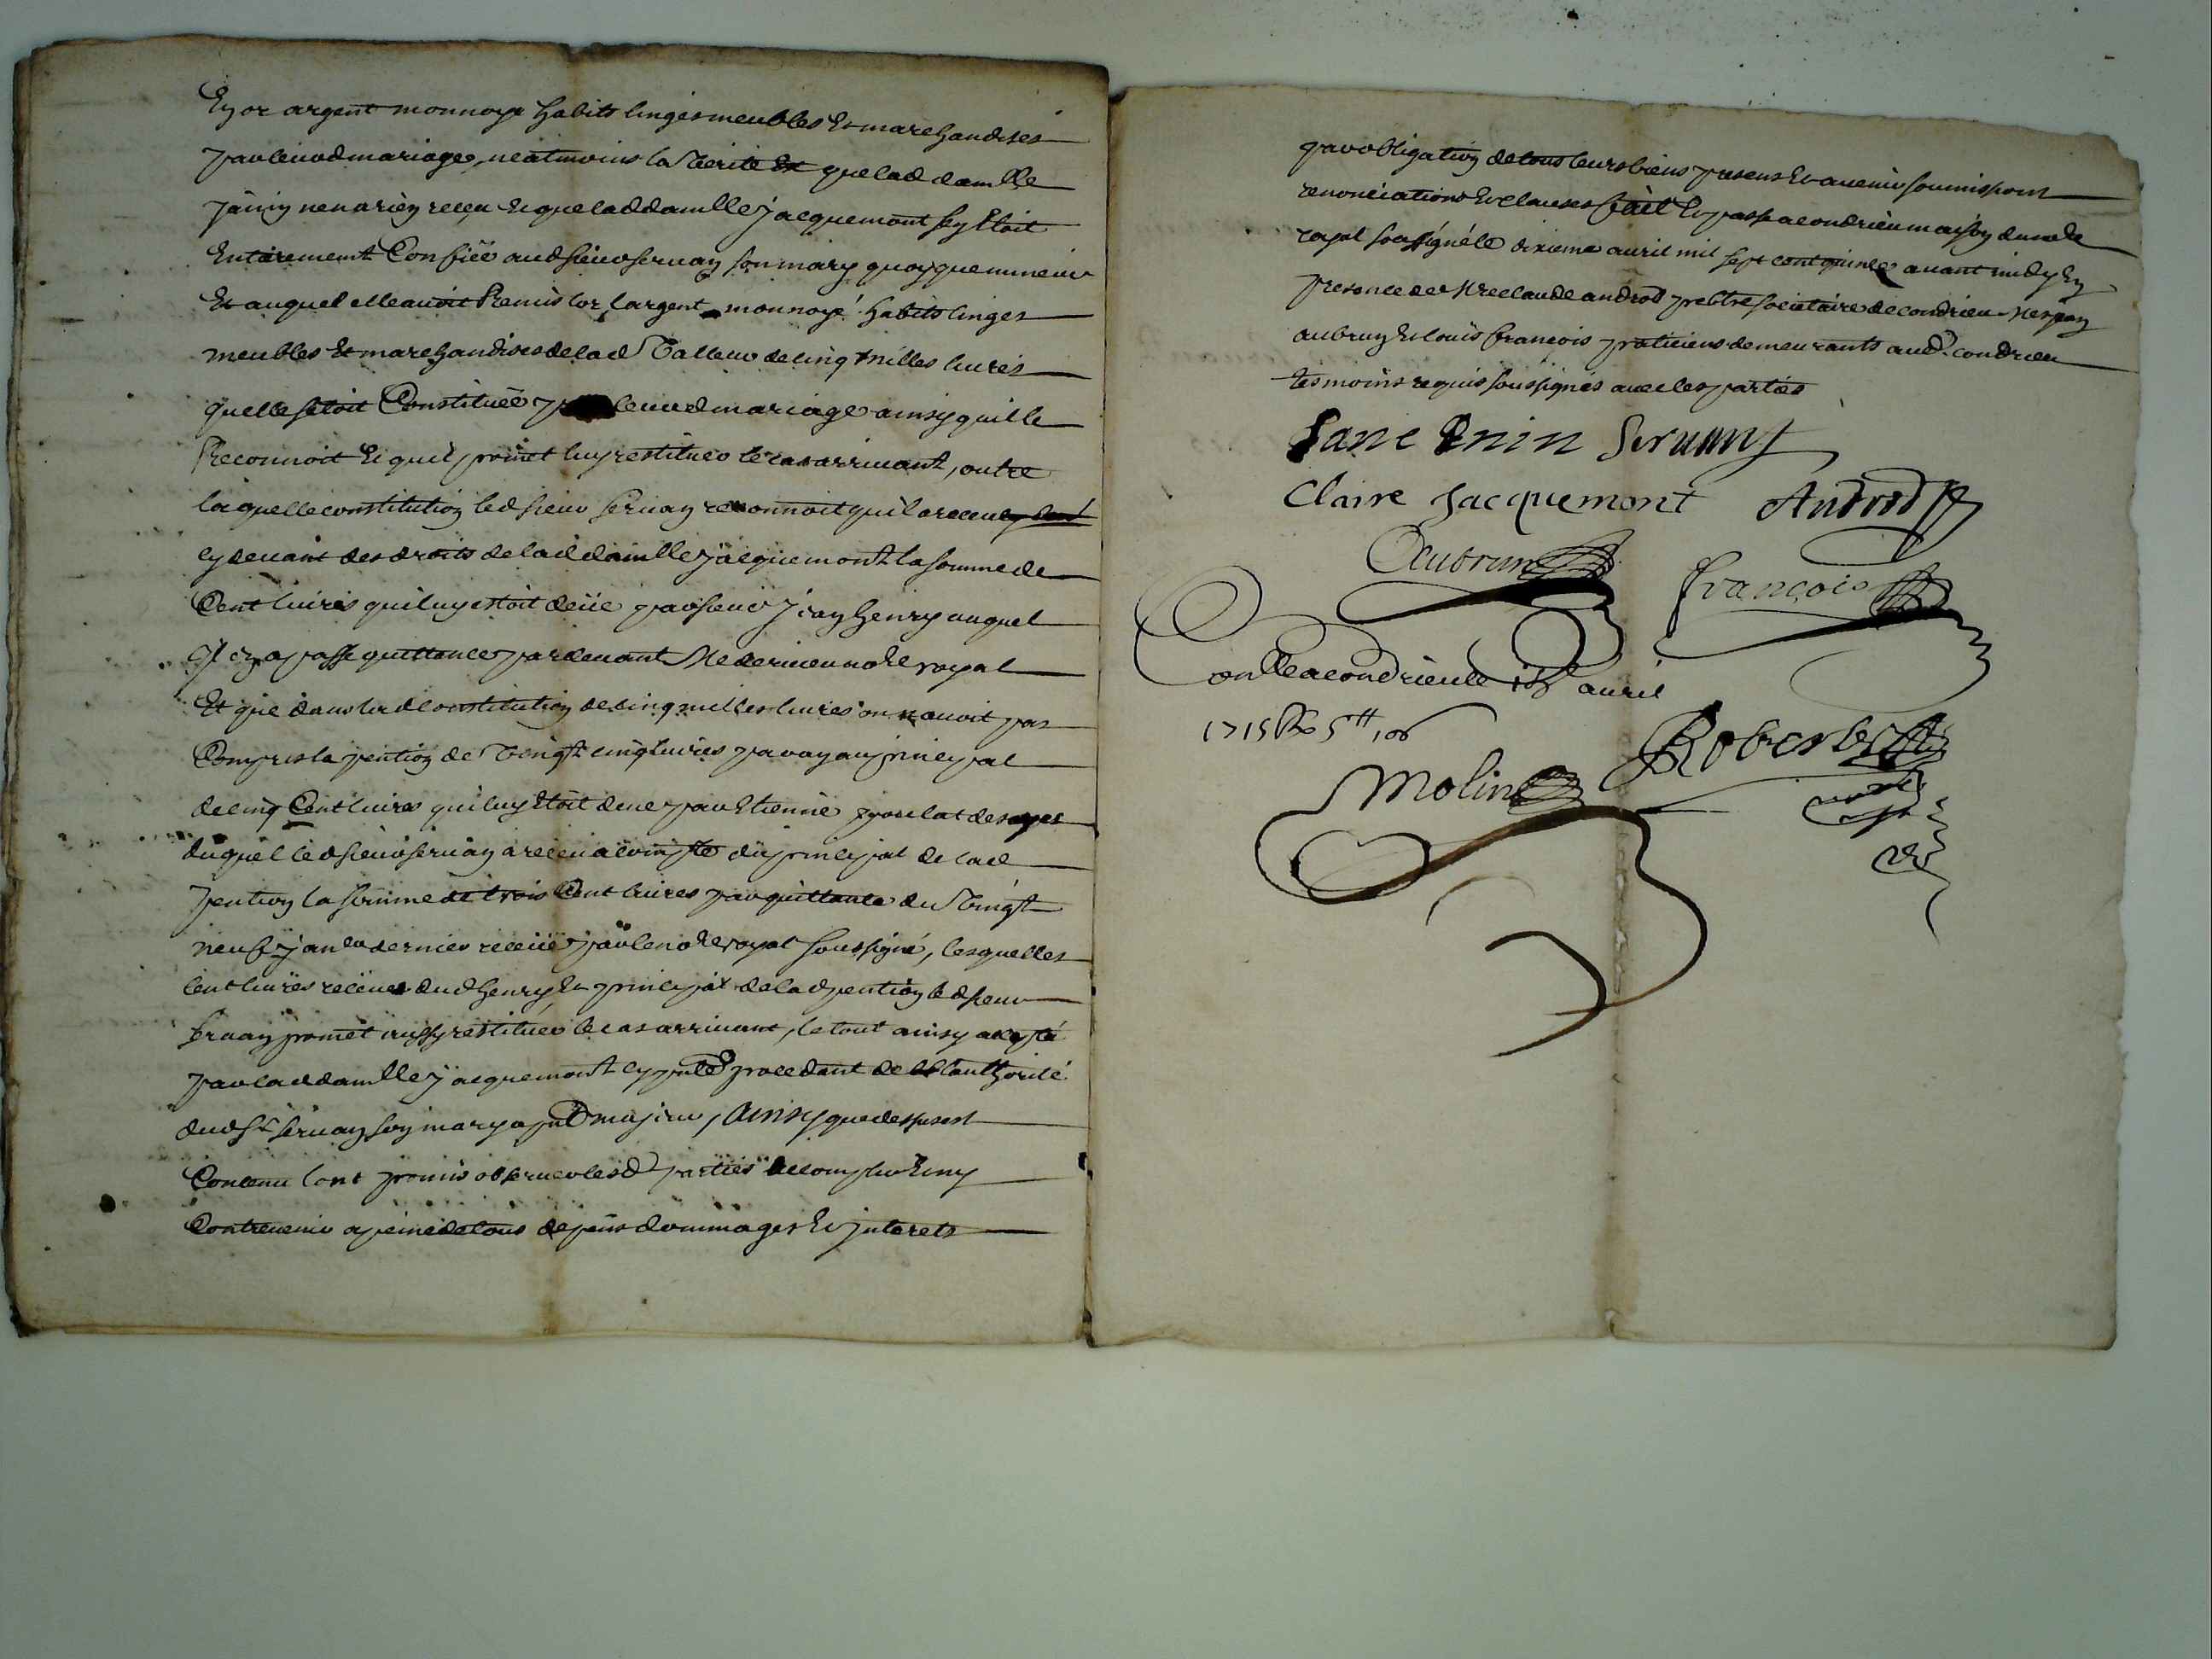 En or argent monnoyé habits linges meubles Et marchandises
par leurd mariage, neatmoins la Verité Est que lad damlle
Janin nen a rien receu Et que lad damlle Jacquemont sen Etoit
Entierement Confiée aud sieur Seruan son mary quoyque mineur
Et auquel elle auoit Remis lor, largent monnoyé habits linges
meubles Et marchandises de lad Valleur de cinq milles liures
quelle setoit Constituée par leurd mariage ainsy quil le
Reconnoit Et quil promet luy restituer le cas arriuant, outre
laquelle constitution led sieur Seruan reconnoit quil a receu
cy deuant des droits de lad damlle Jacquemont la somme de
Cent liures qui luy estoit deüe par sieur Jean henry auquel
Il en a passé quittance par deuant Me derieu nore royal
Et que dans lad Constitution de cinq milles liures on nauoit pas
Compris la pention de Vingt cinq liures par an au principal
de cinq Cent liures qui luy Etoit deue par Etienne
duquel led sieur Seruan a receu a compte du principal de lad
pention la somme de trois Cent liures par quittance du Vingt
neuf janer dernier receüe par le nore royal soussigné, lesquelles
cent liures receues dud henry Et principal de lad pention led sieur
Seruan promet aussy restituer le cas arriuant, le tout ainsy accepté
par lad damlle Jacquemont cy pnte procedant de lauthorité
dud sr Seruan son mary a pnt majeur, Ainsy que dessus est
Contenu lont promis obseruer lesd parties accomplir Et ny
Contreuenir a peine de tous depens dommages Et jnterets
par obligation de tous leurs biens presens Et auenir soumissions
renonciations Et clauses fait Et passé a condrieu maison du nore
royal soussigné le dixieme auril mil sept cent quinze auant midy En
presence de Mre claude androd prebtre societaire de condrieu
aubrun Et louis françois praticiens demeurants aud condrieu
tesmoins requis soussignés auec les parties
Jane Enin Seruant
Claire Jacquemont Androd
Aubrun
françois
Conlle a condrieu le auril
1715 R 5tt
Robert
Molin